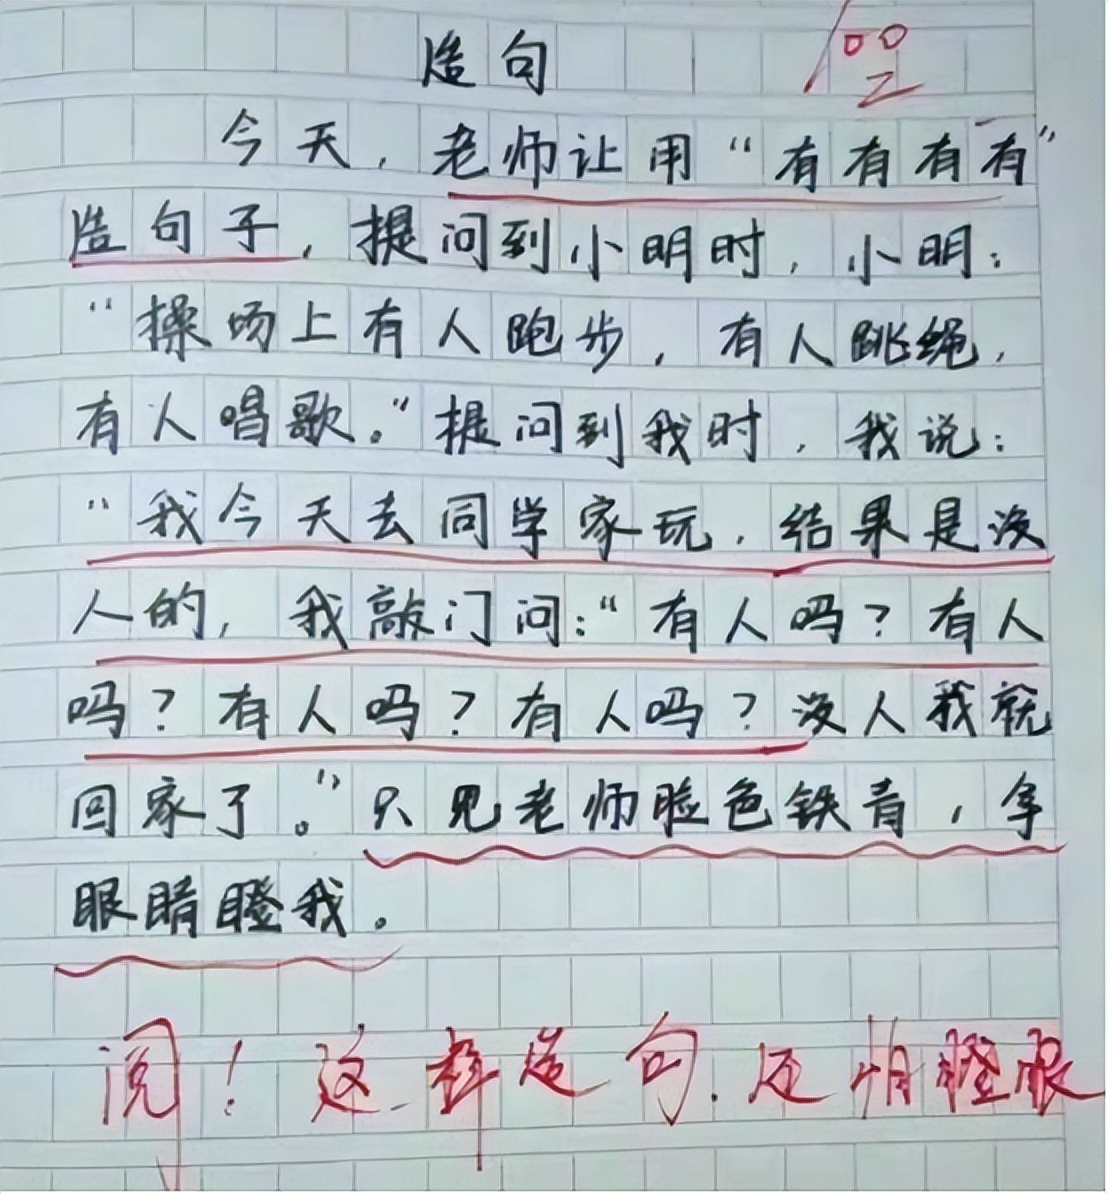 造句
100
今天，老师让用“有有有有”
造句子，提问到小明时，小明：
“操场上有人跑步，有人跳绳，
有人唱歌。”提问到我时，我说：
“我今天去同学家玩，结果是没
人的，我敲门问：“有人吗？有人
吗？有人吗？有人吗？没人我就
回家了。”只见老师脸色铁青，拿
眼睛瞪我。
阅！这样造句.还怕瞪眼